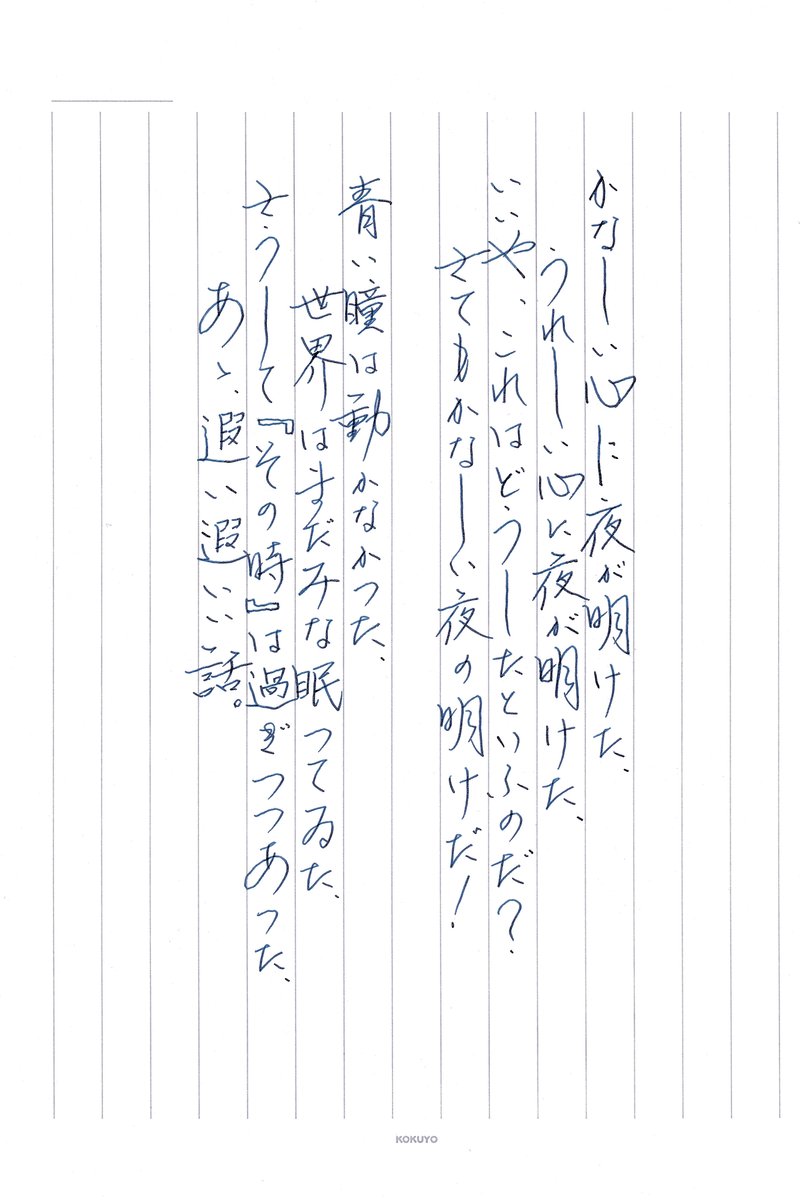 かなしい心に夜が明けた、
うれしい心に夜が明けた、
いいや、これはどうしたといふのだ？
さてもかなしい夜の明けだ！
青い瞳は動かなかつた、
世界はまだみな眠つてゐた、
さうして『その時』は過ぎつつあつた、
あゝ、遐い遐いい話。
KOKUYO